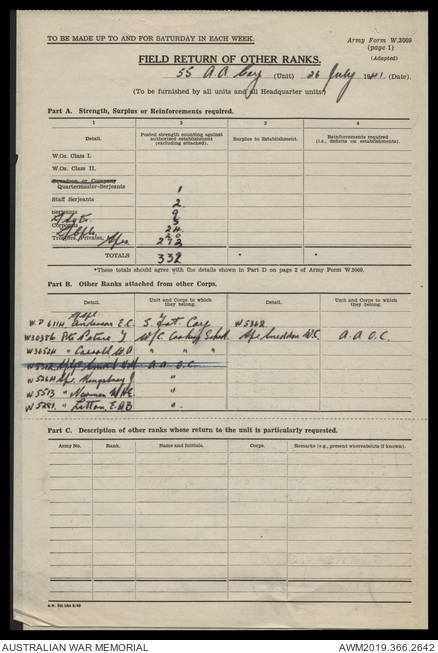 TO BE MADE UP TO AND FOR SATURDAY IN EACH WEEK.
Army Form W.3009
(page 1)
(Adapted)
FIELD RETURN OF OTHER RANKS.
55 A.A. Coy (Unit) 26 July 1941 (Date).
(To be furnished by all units and all Headquarter units)
Part A. Strength, Surplus or Reinforcements required.
1 2 3 4
Detail. Posted strength counting against authorized establishment (excluding attached). Surplus to Establishment. Reinforcements required (i.e., deficits on establishments).
W.Os. Class I.
W.Os. Class II.
Squadron or Company
Quartermaster-Serjeants 1
Staff Serjeants 2
Serjeants 9
TOTALS 332
*These totals should agree with the details shown in Part D on page 2 of Army Form W.3009.
Part B. Other Ranks attached from other Corps.
Detail. Unit and Corps to which they belong. Detail. Unit and Corps to which they belong.
Anderson E.C. W5862
W10386 Pte W/C Cooking School Spr Sneddon W.C. A.A.O.C.
W36524 " Carroll " "
A.A.O.C.
Spr. Kingsbury J "
W5513 " Newman "
" Litton E.A.B "
Part C. Description of other ranks whose return to the unit is particularly requested.
Army No. Rank. Name and Initials. Corps. Remarks (e.g., present whereabouts if known).
AUSTRALIAN WAR MEMORIAL AWM2019.366.2642